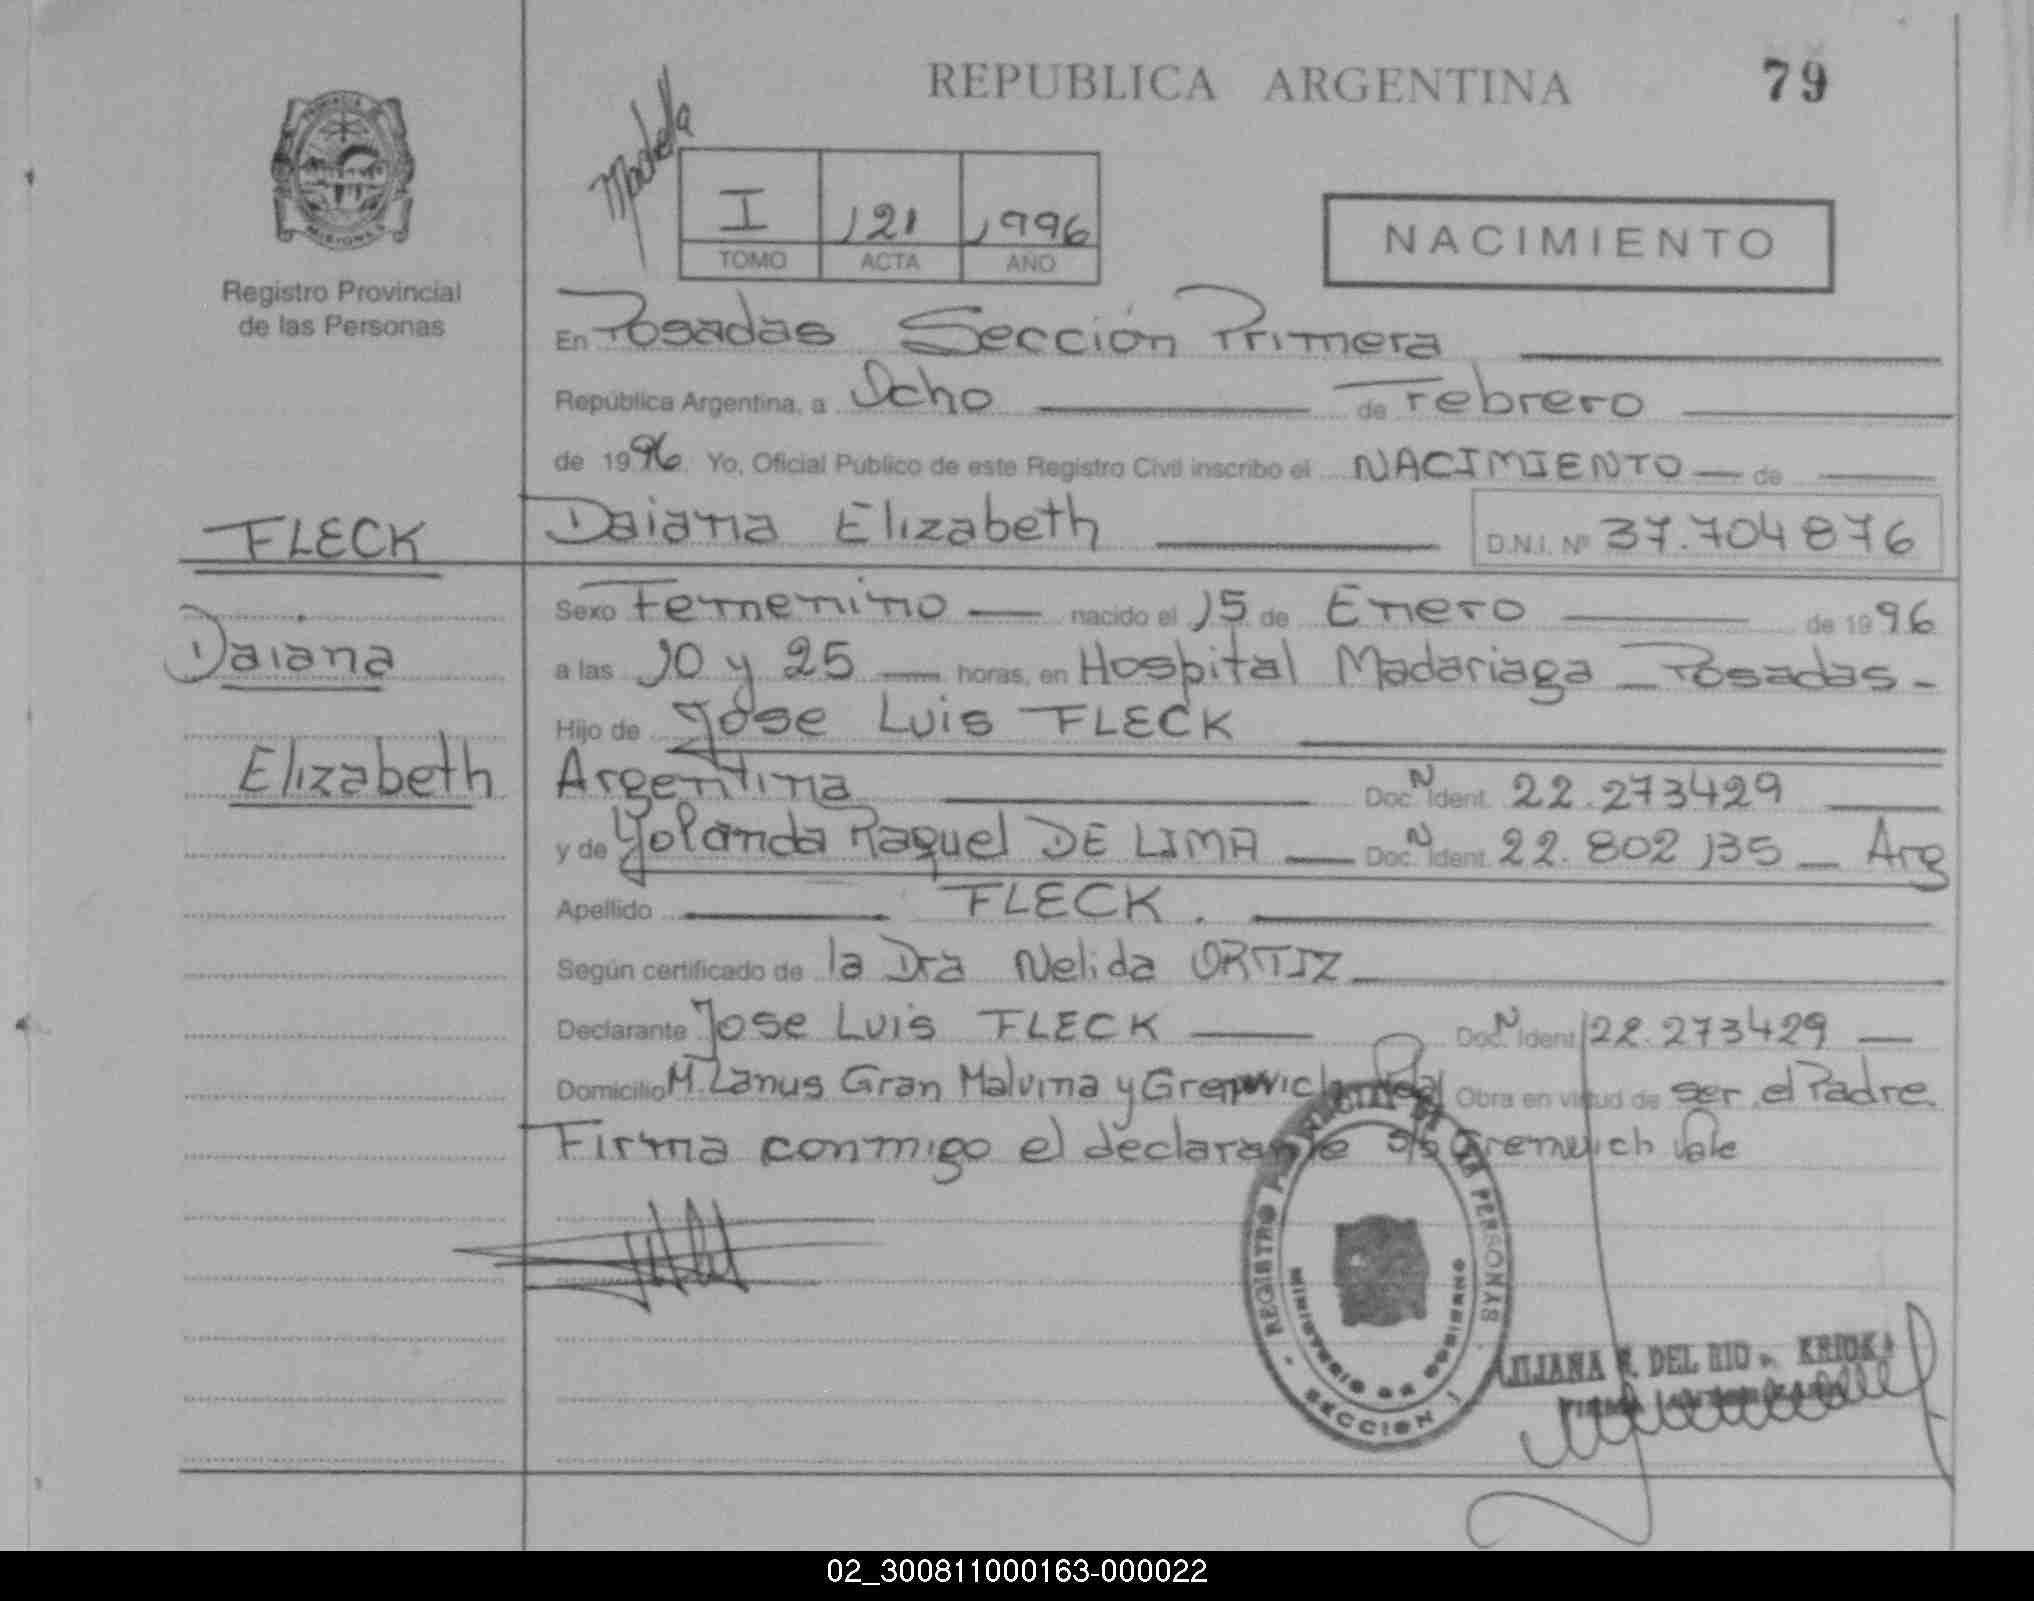 REPUBLICA ARGENTINA 79
PROVINCIA
MISIONES
Registro Provincial
de las Personas
I 121 1996
TOMO ACTA AÑO
NACIMIENTO
En Posadas Sección Primera
República Argentina, a Ocho de Febrero
de 1996. Yo, Oficial Público de este Registro Civil inscribo el NACIMIENTO de
FLECK Daiana Elizabeth D.N.I. Nº 37.704876
Sexo Femenino nacido el 15 de Enero de 1996
Daiana a las 10 y 25 horas, en Hospital Madariaga - Posadas -
Hijo de Jose Luis FLECK
Elizabeth Argentina Doc. N Ident. 22.273429
y de Yolanda Raquel DE LIMA Doc. N Ident. 22.802135 - Arg
Apellido FLECK.
Según certificado de la Dra Nelida ORTIZ
Declarante Jose Luis FLECK Doc. N Ident. 22.273429
Domicilio M. Lanus Gran Malvina y Grenwich Obra en virtud de ser el Padre.
Firma conmigo el declarante s/b Grenwich Vale
REGISTRO DE LAS PERSONAS
MINISTERIO DE GOBIERNO
SECCION 1
DEL RIO
02_300811000163-000022